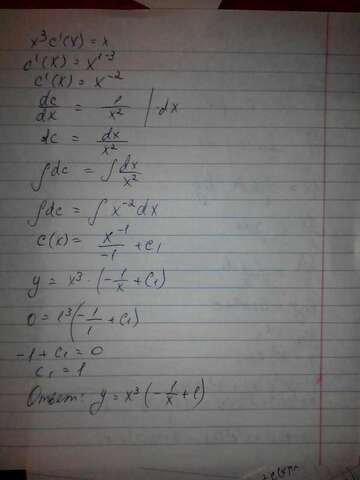 x³c'(x) = x
c'(x) = x¹⁻³
c'(x) = x⁻²
dc/dx = 1/x² | ·dx
dc = dx/x²
∫dc = ∫dx/x²
∫dc = ∫x⁻²dx
c(x) = x⁻¹/-1 + c₁
y = x³ · (-1/x + c₁)
0 = 1³(-1/1 + c₁)
-1 + c₁ = 0
c₁ = 1
Ответ: y = x³(-1/x + 1)